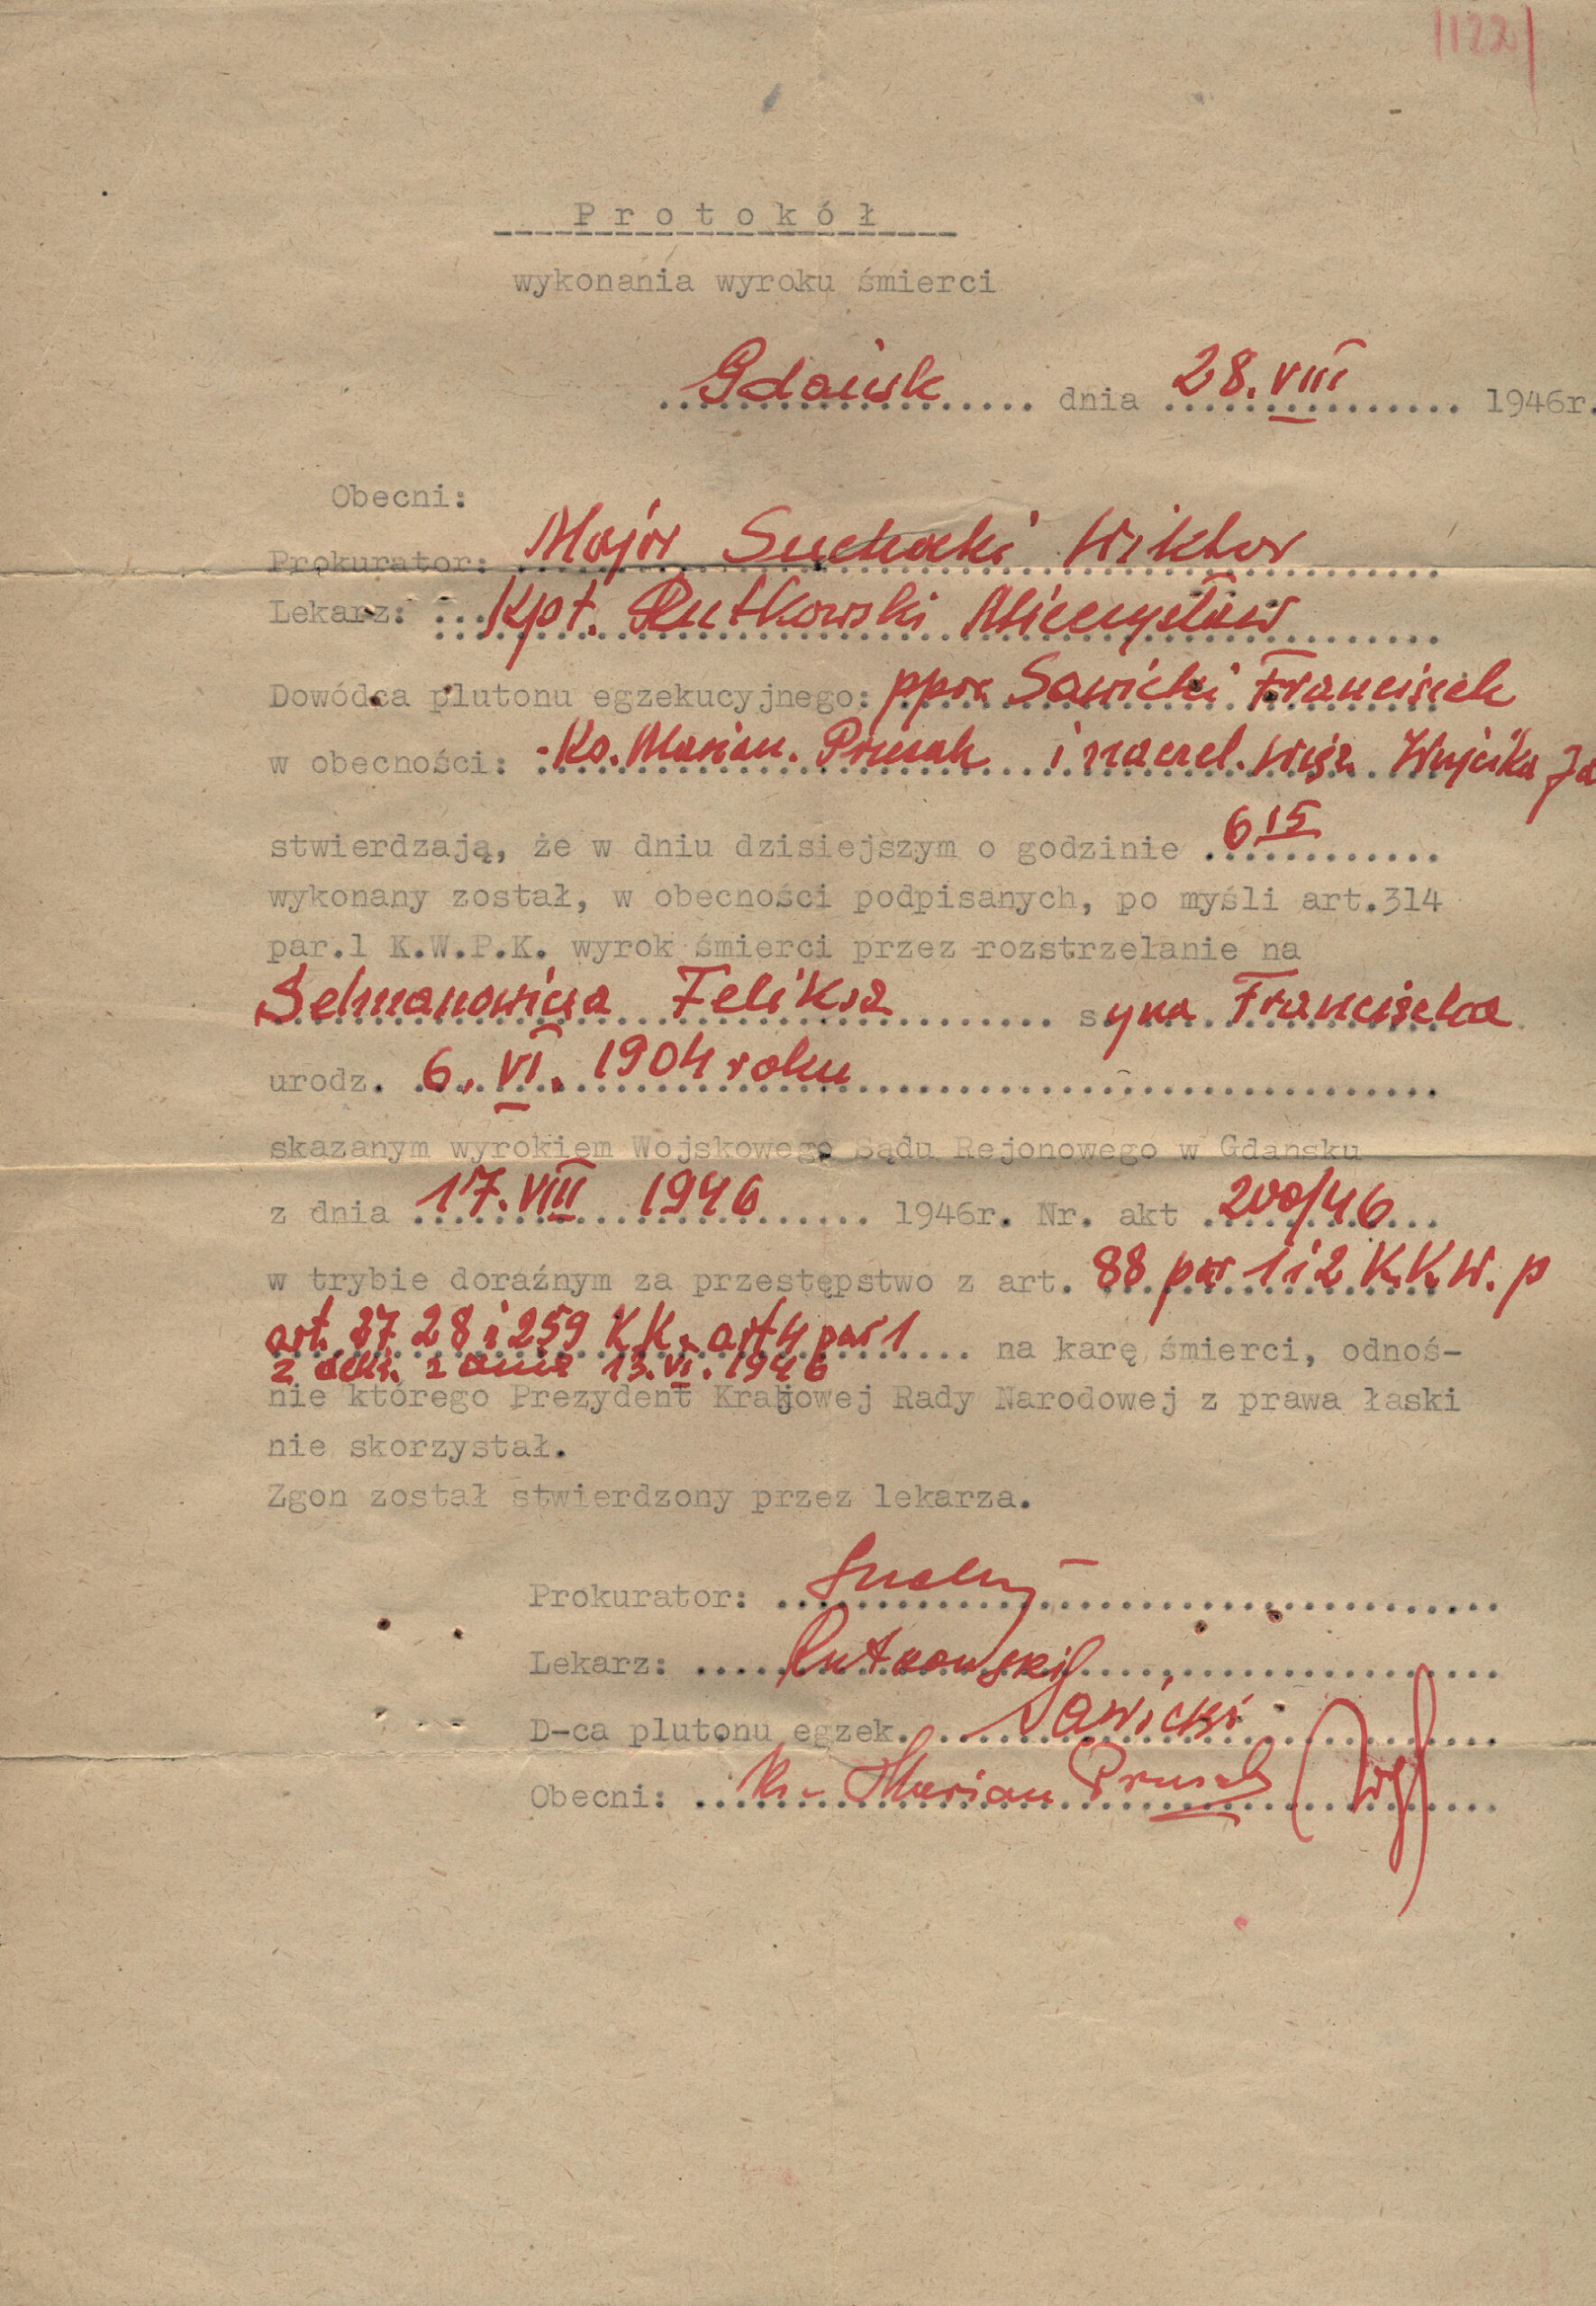 1122
Protokół
wykonania wyroku śmierci
Gdańsk dnia 28.VIII 1946r.
Obecni:
Prokurator: Major Suchocki Wiktor
Lekarz: Kpt. Rutkowski Mieczysław
Dowódca plutonu egzekucyjnego: ppor. Sawicki Franciszek
w obecności: Ks. Marian. Prusak i naczel. więz. Wujcika Ja
stwierdzają, że w dniu dzisiejszym o godzinie 6 15
wykonany został, w obecności podpisanych, po myśli art.314
par.1 K.W.P.K. wyrok śmierci przez rozstrzelanie na
Selmanowicza Feliksa syna Franciszka
urodz. 6. VI. 1904 roku
skazanym wyrokiem Wojskowego Sądu Rejonowego w Gdansku
z dnia 17.VIII 1946 1946r. Nr. akt 200/46
w trybie doraźnym za przestępstwo z art. 88 par 1 i 2 K.K.W.p
art. 27 28 i 259 K.K. art 4 par 1 na karę śmierci, odnoś-
z dekr. z dnia 13.VI.1946
nie którego Prezydent Krajowej Rady Narodowej z prawa łaski
nie skorzystał.
Zgon został stwierdzony przez lekarza.
Prokurator:
Lekarz: Rutkowski
D-ca plutonu egzek. Sawicki
Obecni: Ks. Marian Prusak